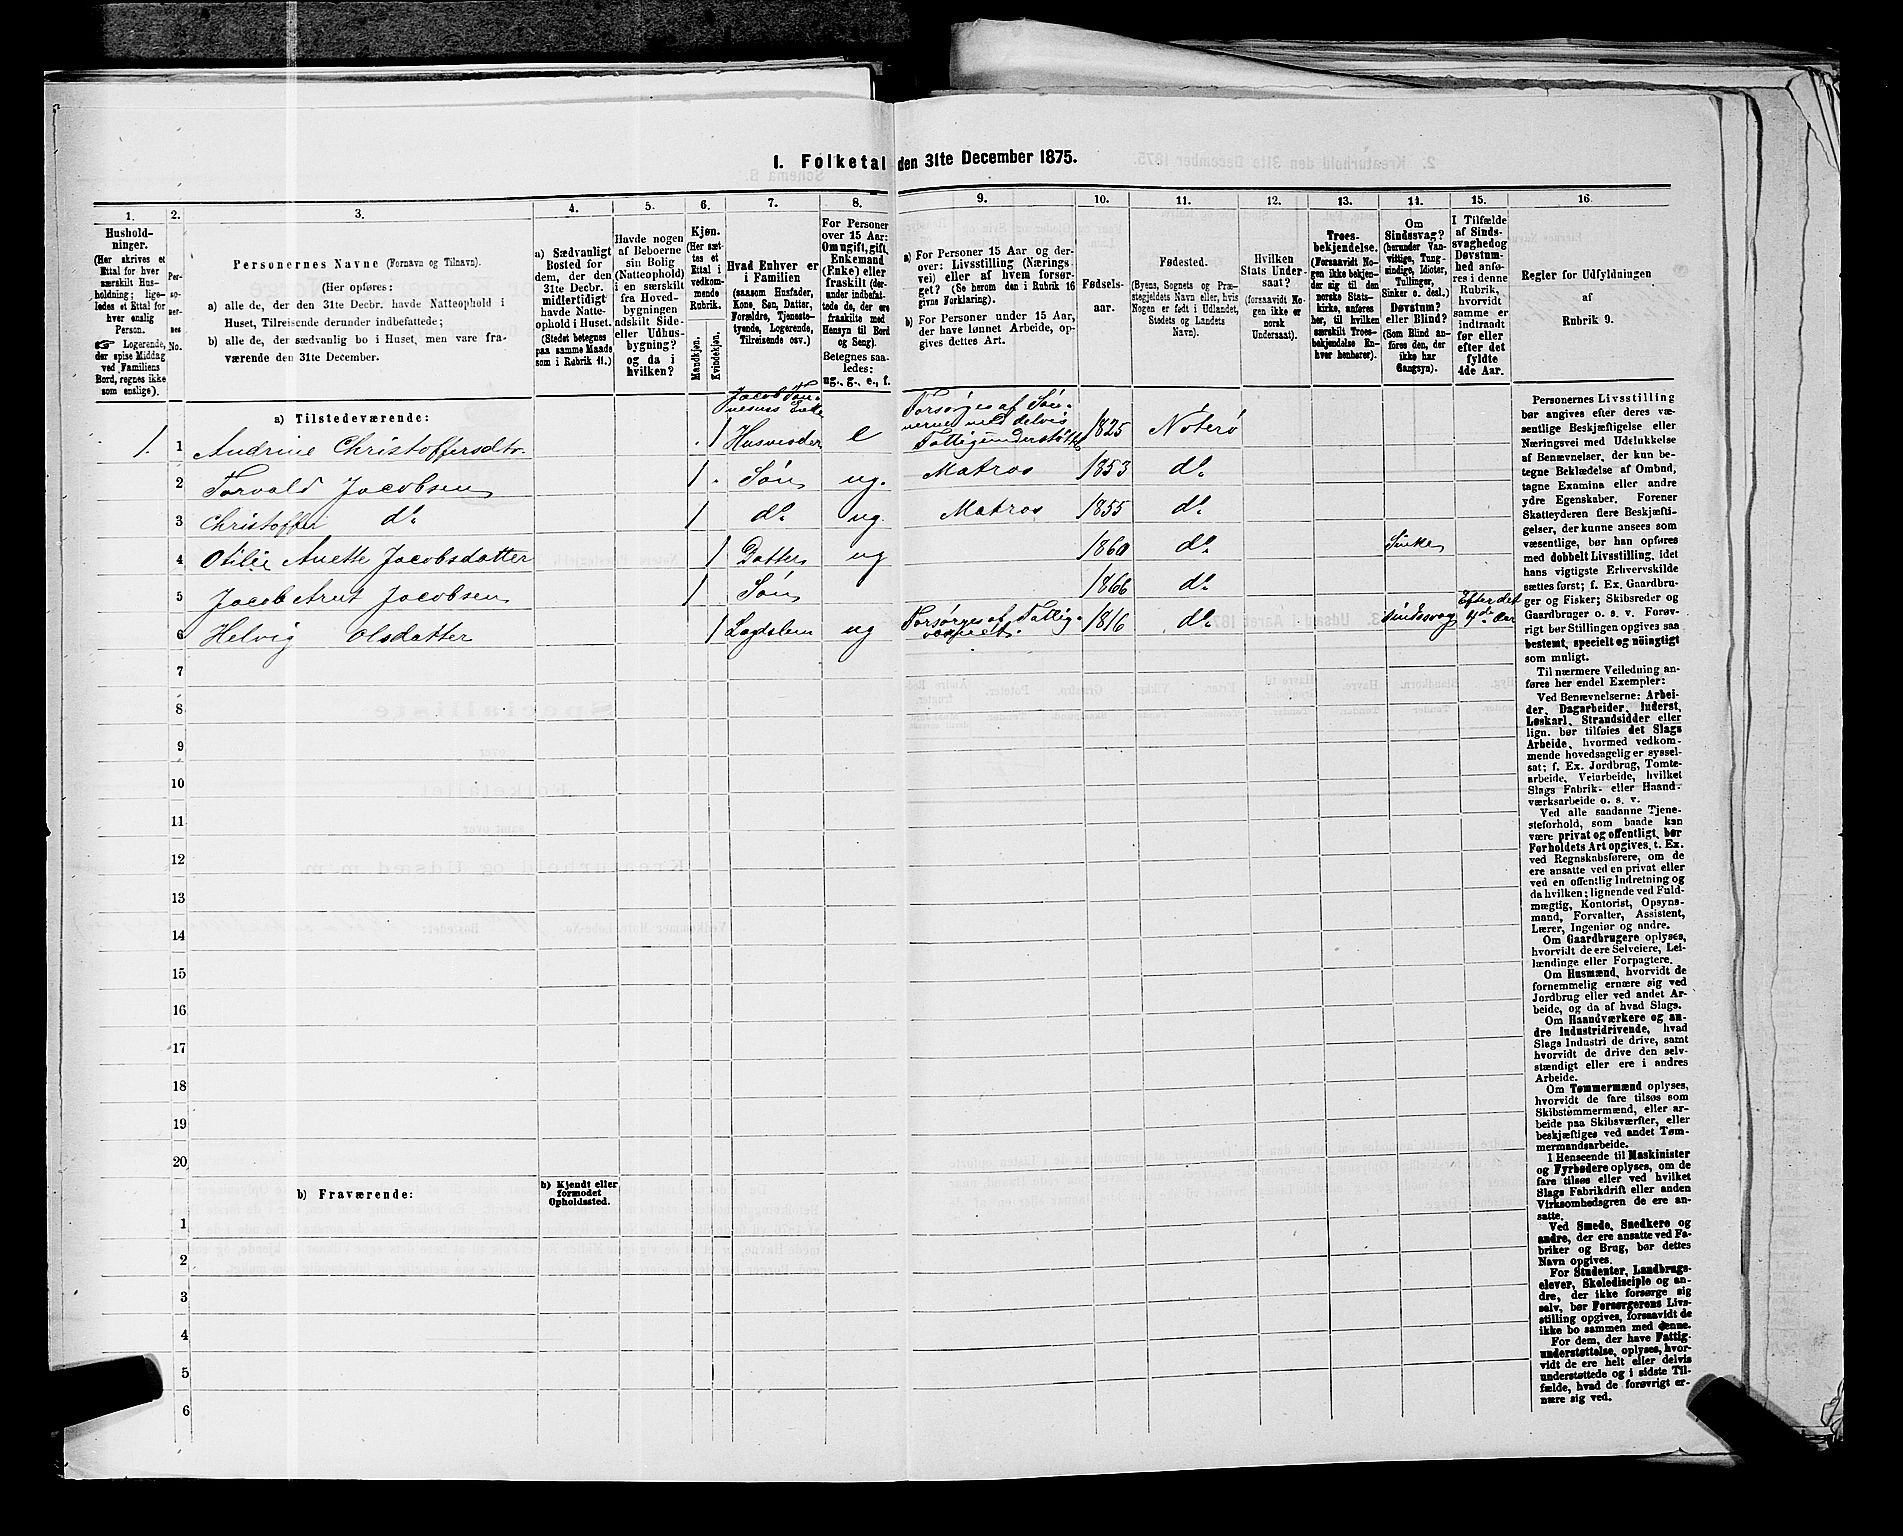 1. Folketal den 31te December 1875.
1.
2.
3.
4.
5.
6.
7.
8.
9.
10.
11.
12.
13.
14.
15.
16.
Hushold-
ninger.
(Her skrives et
Ettal for hver
særskilt Hus-
holdning; lige-
ledes et Ettal for
hver enslig
Person.
☞ Logerende,
der spise Middag
ved Familiens
Bord, regnes ikke
som enslige).
Per-
so-
ner-
nes
No.
Personernes Navne (Fornavn og Tilnavn).
(Her opføres:
a) alle de, der den 31te Decbr. havde Natteophold i
Huset, Tilreisende derunder indbefattede;
b) alle de, der sædvanlig bo i Huset, men vare fra-
værende den 31te December.
a) Sædvanligt
Bosted for
dem, der den
31te Decbr.
midlertidigt
havde Natte-
ophold i Huset.
(Stedet betegnes
paa samme Maade
som i Rubrik 11.)
Havde nogen
af Beboerne
sin Bolig
(Natteophold)
i en særskilt
fra Hoved-
bygningen
adskilt Side-
eller Udhus-
bygning?
og da i
hvilken?
Kjøn.
(Her sæt-
tes et
Ettal i
vedkom-
mende
Rubrik.
Mandkjøn.
Kvindekjøn.
Hvad Enhver er
i Familien
(saasom Husfader,
Kone, Søn, Datter,
Forældre, Tjeneste-
tyende, Logerende,
Tilreisende osv.)
For Personer
over 15 Aar:
Om ugift, gift,
Enkemand
(Enke) eller
fraskilt (der-
under indbefat-
tede de, der ere
fraskilte med
Hensyn til Bord
og Seng).
Betegnes saa-
ledes:
ug., g., e., f.
a) For Personer 15 Aar og der-
over: Livsstilling (Nærings-
vei) eller af hvem forsør-
get? (Se herom den i Rubrik 16
givne Forklaring).
b) For Personer under 15 Aar,
der have lønnet Arbeide, op-
gives dettes Art.
Fødsels-
aar.
Fødested.
(Byens, Sognets og Præ-
stegjeldets Navn eller, hvis
Nogen er født i Udlandet,
Stedets og Landets
Navn).
Hvilken
Stats Under-
saat?
(forsaavidt No-
gen ikke er
norsk
Undersaat).
Troes-
bekjendelse.
(Forsaavidt No-
gen ikke bekjen-
der sig til den
norske Stats-
kirke, anføres
her, til hvilken
særskilt Troes-
bekjendelse En-
hver henhører).
Om
Sindssvag?
(herunder Van-
vittige, Tung-
sindige, Idioter,
Tullinger,
Sinker o. desl.)
Døvstum?
eller Blind?
(Som Blind an-
føres den, der
ikke har
Gangsyn).
I Tilfælde
af Sinds-
svaghed og
Døvstum-
hed anfø-
res i denne
Rubrik,
hvorvidt
samme er
indtraadt
før eller
efter det
fyldte
4de Aar.
Regler for Udfyldningen
af
Rubrik 9.
a) Tilstedeværende:
1. 1 Andrine Christoffersdtr. 1 Jacob Tønnesens Enke Husmoder e Forsørges af Sønnerne med delvis Fattigunderstøttelse 1825 Nøterø
2 Torvald Jacobsen 1 Søn ug. Matros 1853 do
3 Christoffer do 1 do ug. Matros 1855 do
4 Otilie Anette Jacobsdatter 1 Datter ug 1860 do Sinke
5 Jacob Jacobsen 1 Søn 1866 do
6 Helvig Olsdatter 1 Lægdslem ug Forsørges af Fattigvæsenet. 1816 do Sindssvag Efter det 4de Aar
7
8
9
10
11
12
13
14
15
16
17
18
19
20
b) Fraværende:
b) Kjendt eller
formodet
Opholdssted.
1
2
3
4
5
6
Personernes Livsstilling
bør angives efter deres væ-
sentlige Beskjæftigelse eller
Næringsvei med Udelukkelse
af Benævnelser, der kun be-
tegne Beklædelse af Ombud,
tagne Examina eller andre
ydre Egenskaber. Forener
Skatteyderen flere Beskjæfti-
gelser, der kunne ansees som
væsentlige, bør han opføres
med dobbelt Livsstilling, idet
hans vigtigste Erhvervskilde
sættes først; f. Ex. Gaardbru-
ger og Fisker; Skibsreder og
Gaardbruger o. s. v. Forøv-
rigt bør Stillingen opgives saa
bestemt, specielt og nöiagtigt
som muligt.
Til nærmere Veiledning an-
føres her endel Exempler:
Ved Benævnelserne: Arbei-
der, Dagarbeider, Inderst,
Løskarl, Strandsidder eller
lign. bør tilføies det Slags
Arbeide, hvormed vedkom-
mende hovedsagelig er syssel-
sat; f. Ex. Jordbrug, Tomte-
arbeide, Veiarbeide, hvilket
Slags Fabrik- eller Haand-
værksarbeide o. s. v.
Ved alle saadanne Tjene-
steforhold, som baade kan
være privat og offentligt, bør
Forholdets Art opgives, t. Ex.
ved Regnskabsførere, om de
ere ansatte ved en privat eller
ved en offentlig Indretning og
da hvilken; lignende ved Fuld-
mægtig, Kontorist, Opsyns-
mand, Forvalter, Assistent,
Lærer, Ingeniør og andre.
Om Gaardbrugere oplyses,
hvorvidt de ere Selveiere, Lei-
lændinge eller Forpagtere.
Om Husmænd, hvorvidt de
fornemmelig ernære sig ved
Jordbrug eller ved andet Ar-
beide, og da af hvad Slags.
Om Haandværkere og an-
dre Industridrivende, hvad
Slags Industri de drive, samt
hvorvidt de drive den selv-
stændigt eller ere i andres
Arbeide.
Om Tømmermænd oplyses,
hvorvidt de fare tilsøs som
Skibstømmermænd, eller ar-
beide paa Skibsværfter, eller
beskjæftiges ved andet Tøm-
mermandsarbeide.
I Henseende til Maskinister
og Fyrbødere oplyses, om de
fare tilsøs eller ved hvilket
Slags Fabrikdrift eller anden
Virksomhedsgren de ere an-
satte.
Ved Smede, Snedkere og
andre, der ere ansatte ved Fa-
briker og Brug, bør dettes
Navn opgives.
For Studenter, Landbrugs-
elever, Skoledisciple og an-
dre, der ikke forsørge sig
selv, bør Forsørgerens Livs-
stilling opgives, forsaavidt de
ikke bo sammen med denne.
For dem, der have Fattig-
understøttelse, oplyses, hvor-
vidt de ere helt eller delvis
understøttede og i sidste Til-
fælde, hvad de forøvrigt er-
nære sig ved.